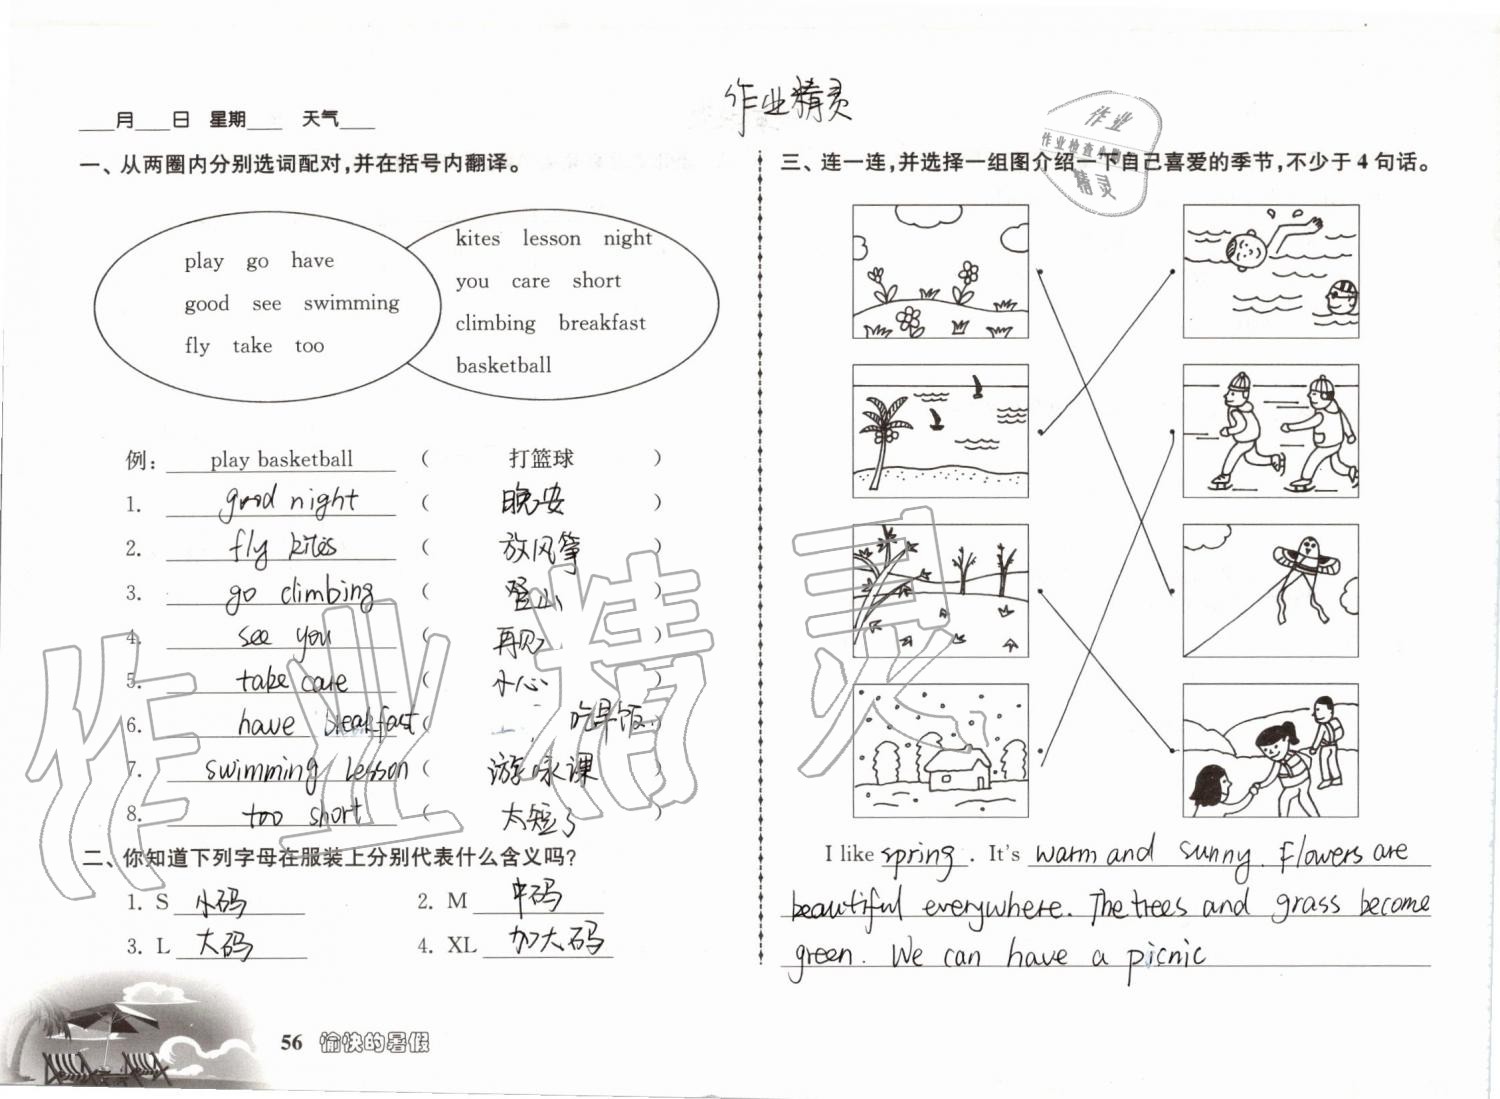 作业精灵
___月___日 星期___ 天气___
一、从两圈内分别选词配对,并在括号内翻译。
play go have
good see swimming
fly take too
kites lesson night
you care short
climbing breakfast
basketball
例: play basketball ( 打篮球 )
1. good night ( 晚安 )
2. fly kites ( 放风筝 )
3. go climbing ( 登山 )
4. see you ( 再见 )
5. take care ( 小心 )
6. have breakfast ( 吃早饭 )
7. swimming lesson ( 游泳课 )
8. too short ( 太短了 )
二、你知道下列字母在服装上分别代表什么含义吗?
1. S 小码 2. M 中码
3. L 大码 4. XL 加大码
56 愉快的暑假
三、连一连,并选择一组图介绍一下自己喜爱的季节,不少于4句话。
作业
作业检查小
精灵
I like spring. It's warm and sunny. Flowers are
beautiful everywhere. The trees and grass become
green. We can have a picnic
作业精灵